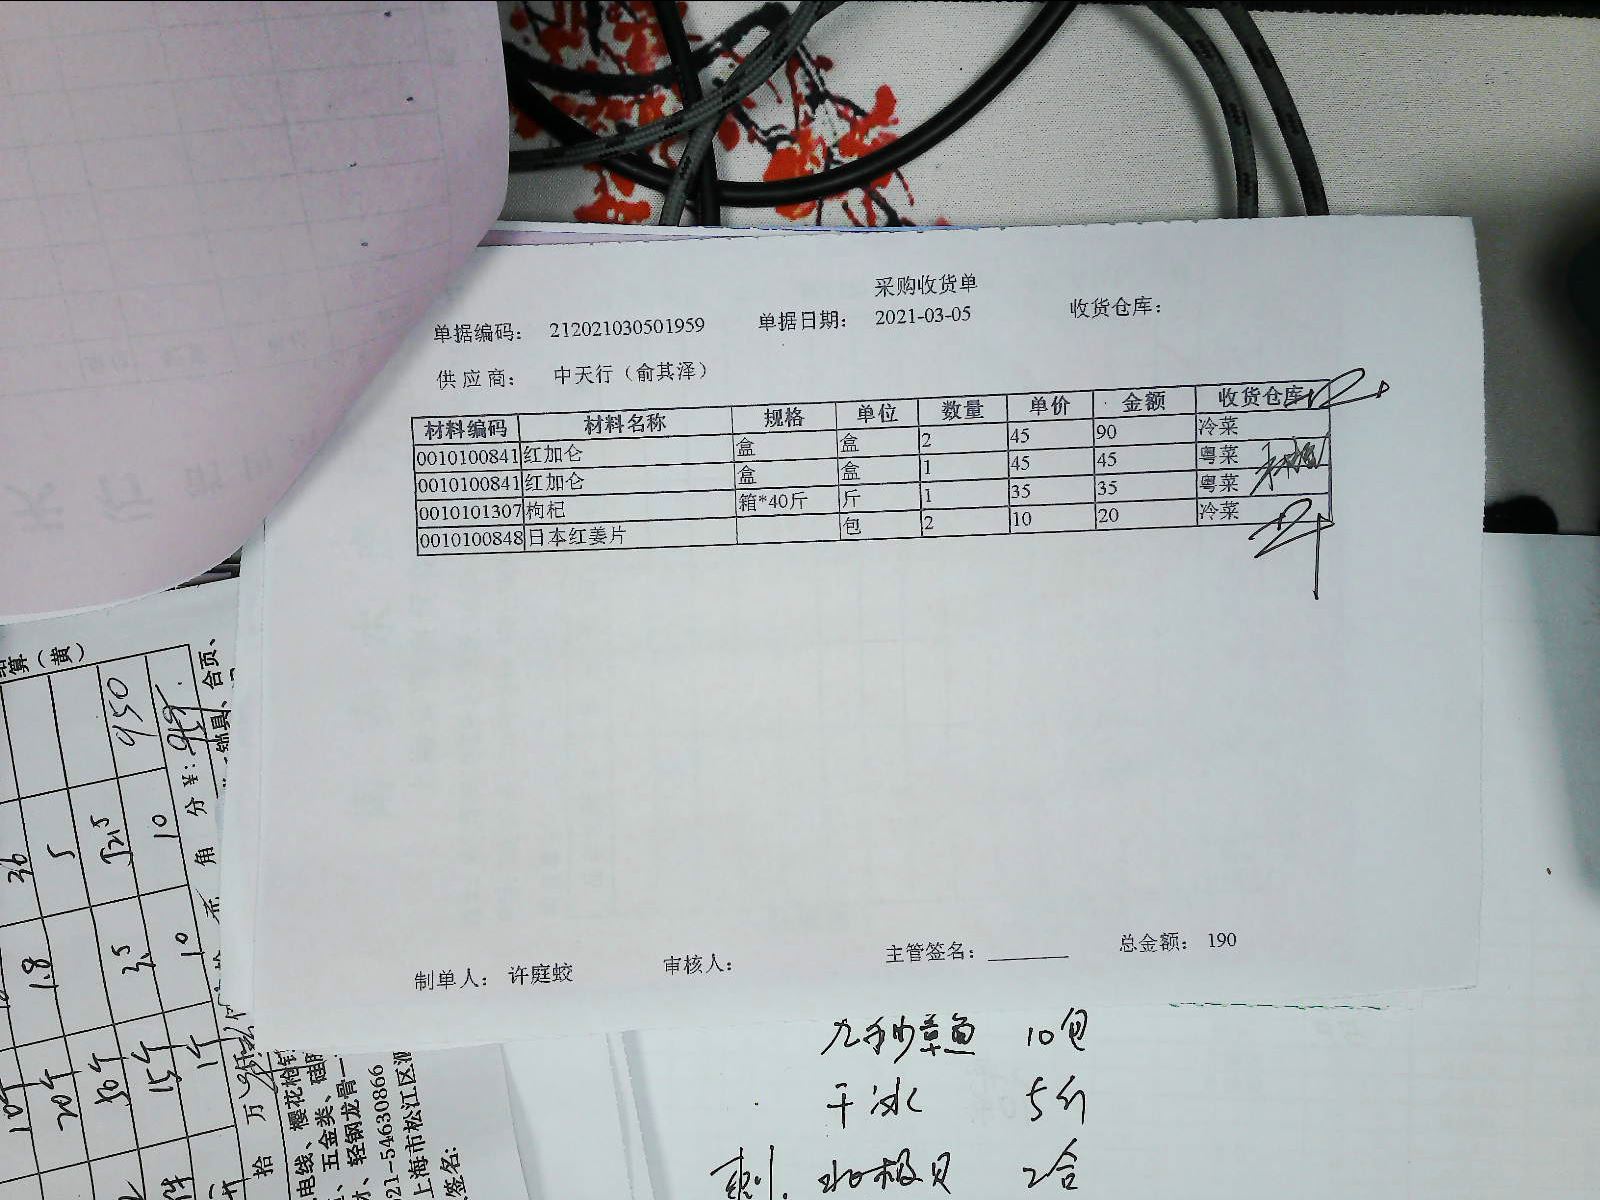 采购收货单
单据编码： 212021030501959 单据日期： 2021-03-05 收货仓库：
供应商： 中天行（俞其泽）
材料编码 材料名称 规格 单位 数量 单价 金额 收货仓库
0010100841 红加仑 盒 盒 2 45 90 冷菜
0010100841 红加仑 盒 盒 1 45 45 粤菜
0010101307 枸杞 箱*40斤 斤 1 35 35 粤菜
0010100848 日本红姜片 包 2 10 20 冷菜
制单人： 许庭蛟 审核人： 主管签名： 总金额： 190
九秒章鱼 10包
干冰 5斤
北极贝 2合
算（黄）
950
36 5 52.5 10
1.8 3.5 10
10个 20个 50个 15个 1个
角 分 ¥:
拾 万
电线、樱花枪
五金类、
、轻钢龙骨
021-54630866
上海市松江区
签名:
具、合页、